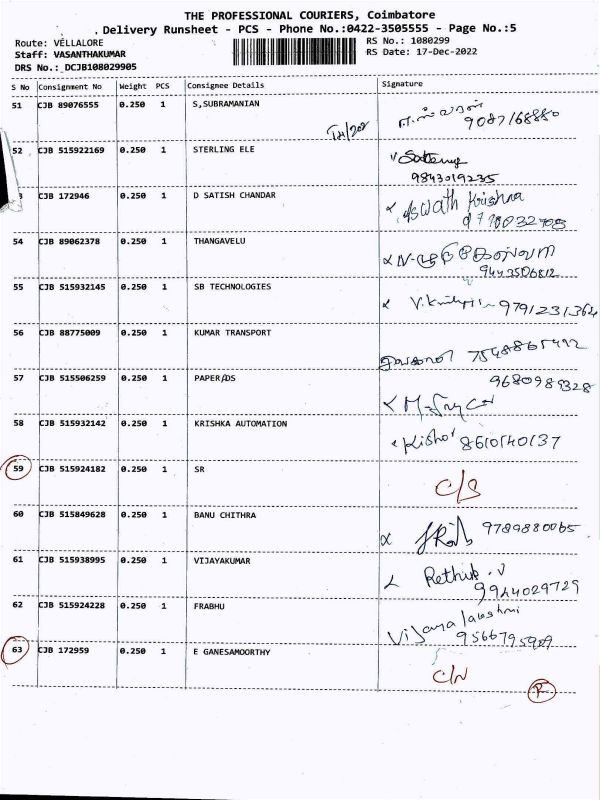 THE PROFESSIONAL COURIERS, Coimbatore
Delivery Runsheet - PCS - Phone No.:0422-3505555 - Page No.:5
Route: VELLALORE
RS No.: 1080299
Staff: VASANTHAKUMAR
RS Date: 17-Dec-2022
DRS No.: DCJB108029905
S No Consignment No Weight PCS Consignee Details Signature
51 CJB 89076555 0.250 1 S,SUBRAMANIAN
9087168880
52 CJB 515922169 0.250 1 STERLING ELE
9843019235
CJB 172946 0.250 1 D SATISH CHANDAR Aswath Krishna
54 CJB 89062378 0.250 1 THANGAVELU
9443506812
55 CJB 515932145 0.250 1 SB TECHNOLOGIES 9791231364
56 CJB 88775009 0.250 1 KUMAR TRANSPORT
7548865492
57 CJB 515506259 0.250 1 PAPER/DS 9680989328
58 CJB 515932142 0.250 1 KRISHKA AUTOMATION Kishor 8610140137
59 CJB 515924182 0.250 1 SR C/S
60 CJB 515849628 0.250 1 BANU CHITHRA 9789880065
61 CJB 515938995 0.250 1 VIJAYAKUMAR Rethik.V
9944029729
62 CJB 515924228 0.250 1 FRABHU Vijayalakshmi
9566795909
63 CJB 172959 0.250 1 E GANESAMOORTHY C/N
R